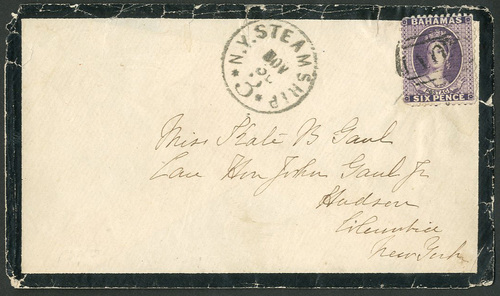 BAHAMAS
SIX PENCE
N.Y. STEAMSHIP
NOV
Miss Kate B Gaul
Care Hon John Gaul Jr
Hudson
Columbia
New York